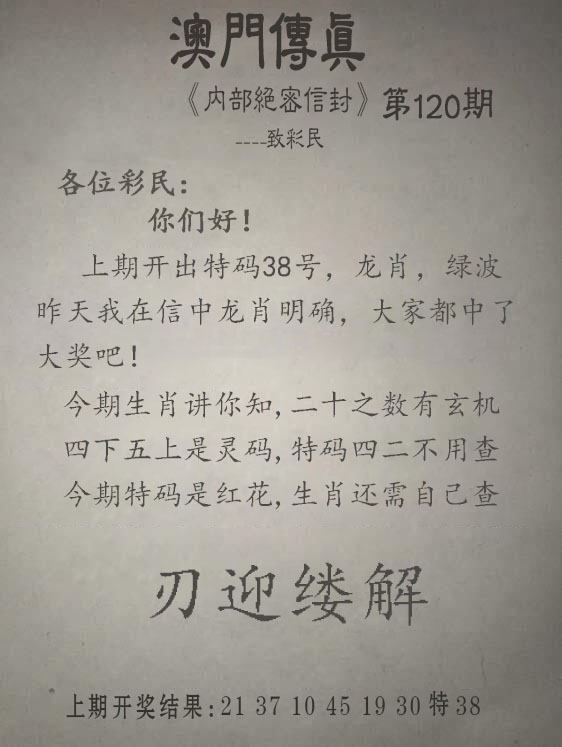 澳門傳眞
《内部絕密信封》第120期
----致彩民
各位彩民:
你们好!
上期开出特码38号，龙肖，绿波
昨天我在信中龙肖明确，大家都中了
大奖吧!
今期生肖讲你知,二十之数有玄机
四下五上是灵码,特码四二不用查
今期特码是红花,生肖还需自己查
刃迎缕解
上期开奖结果:21 37 10 45 19 30 特38